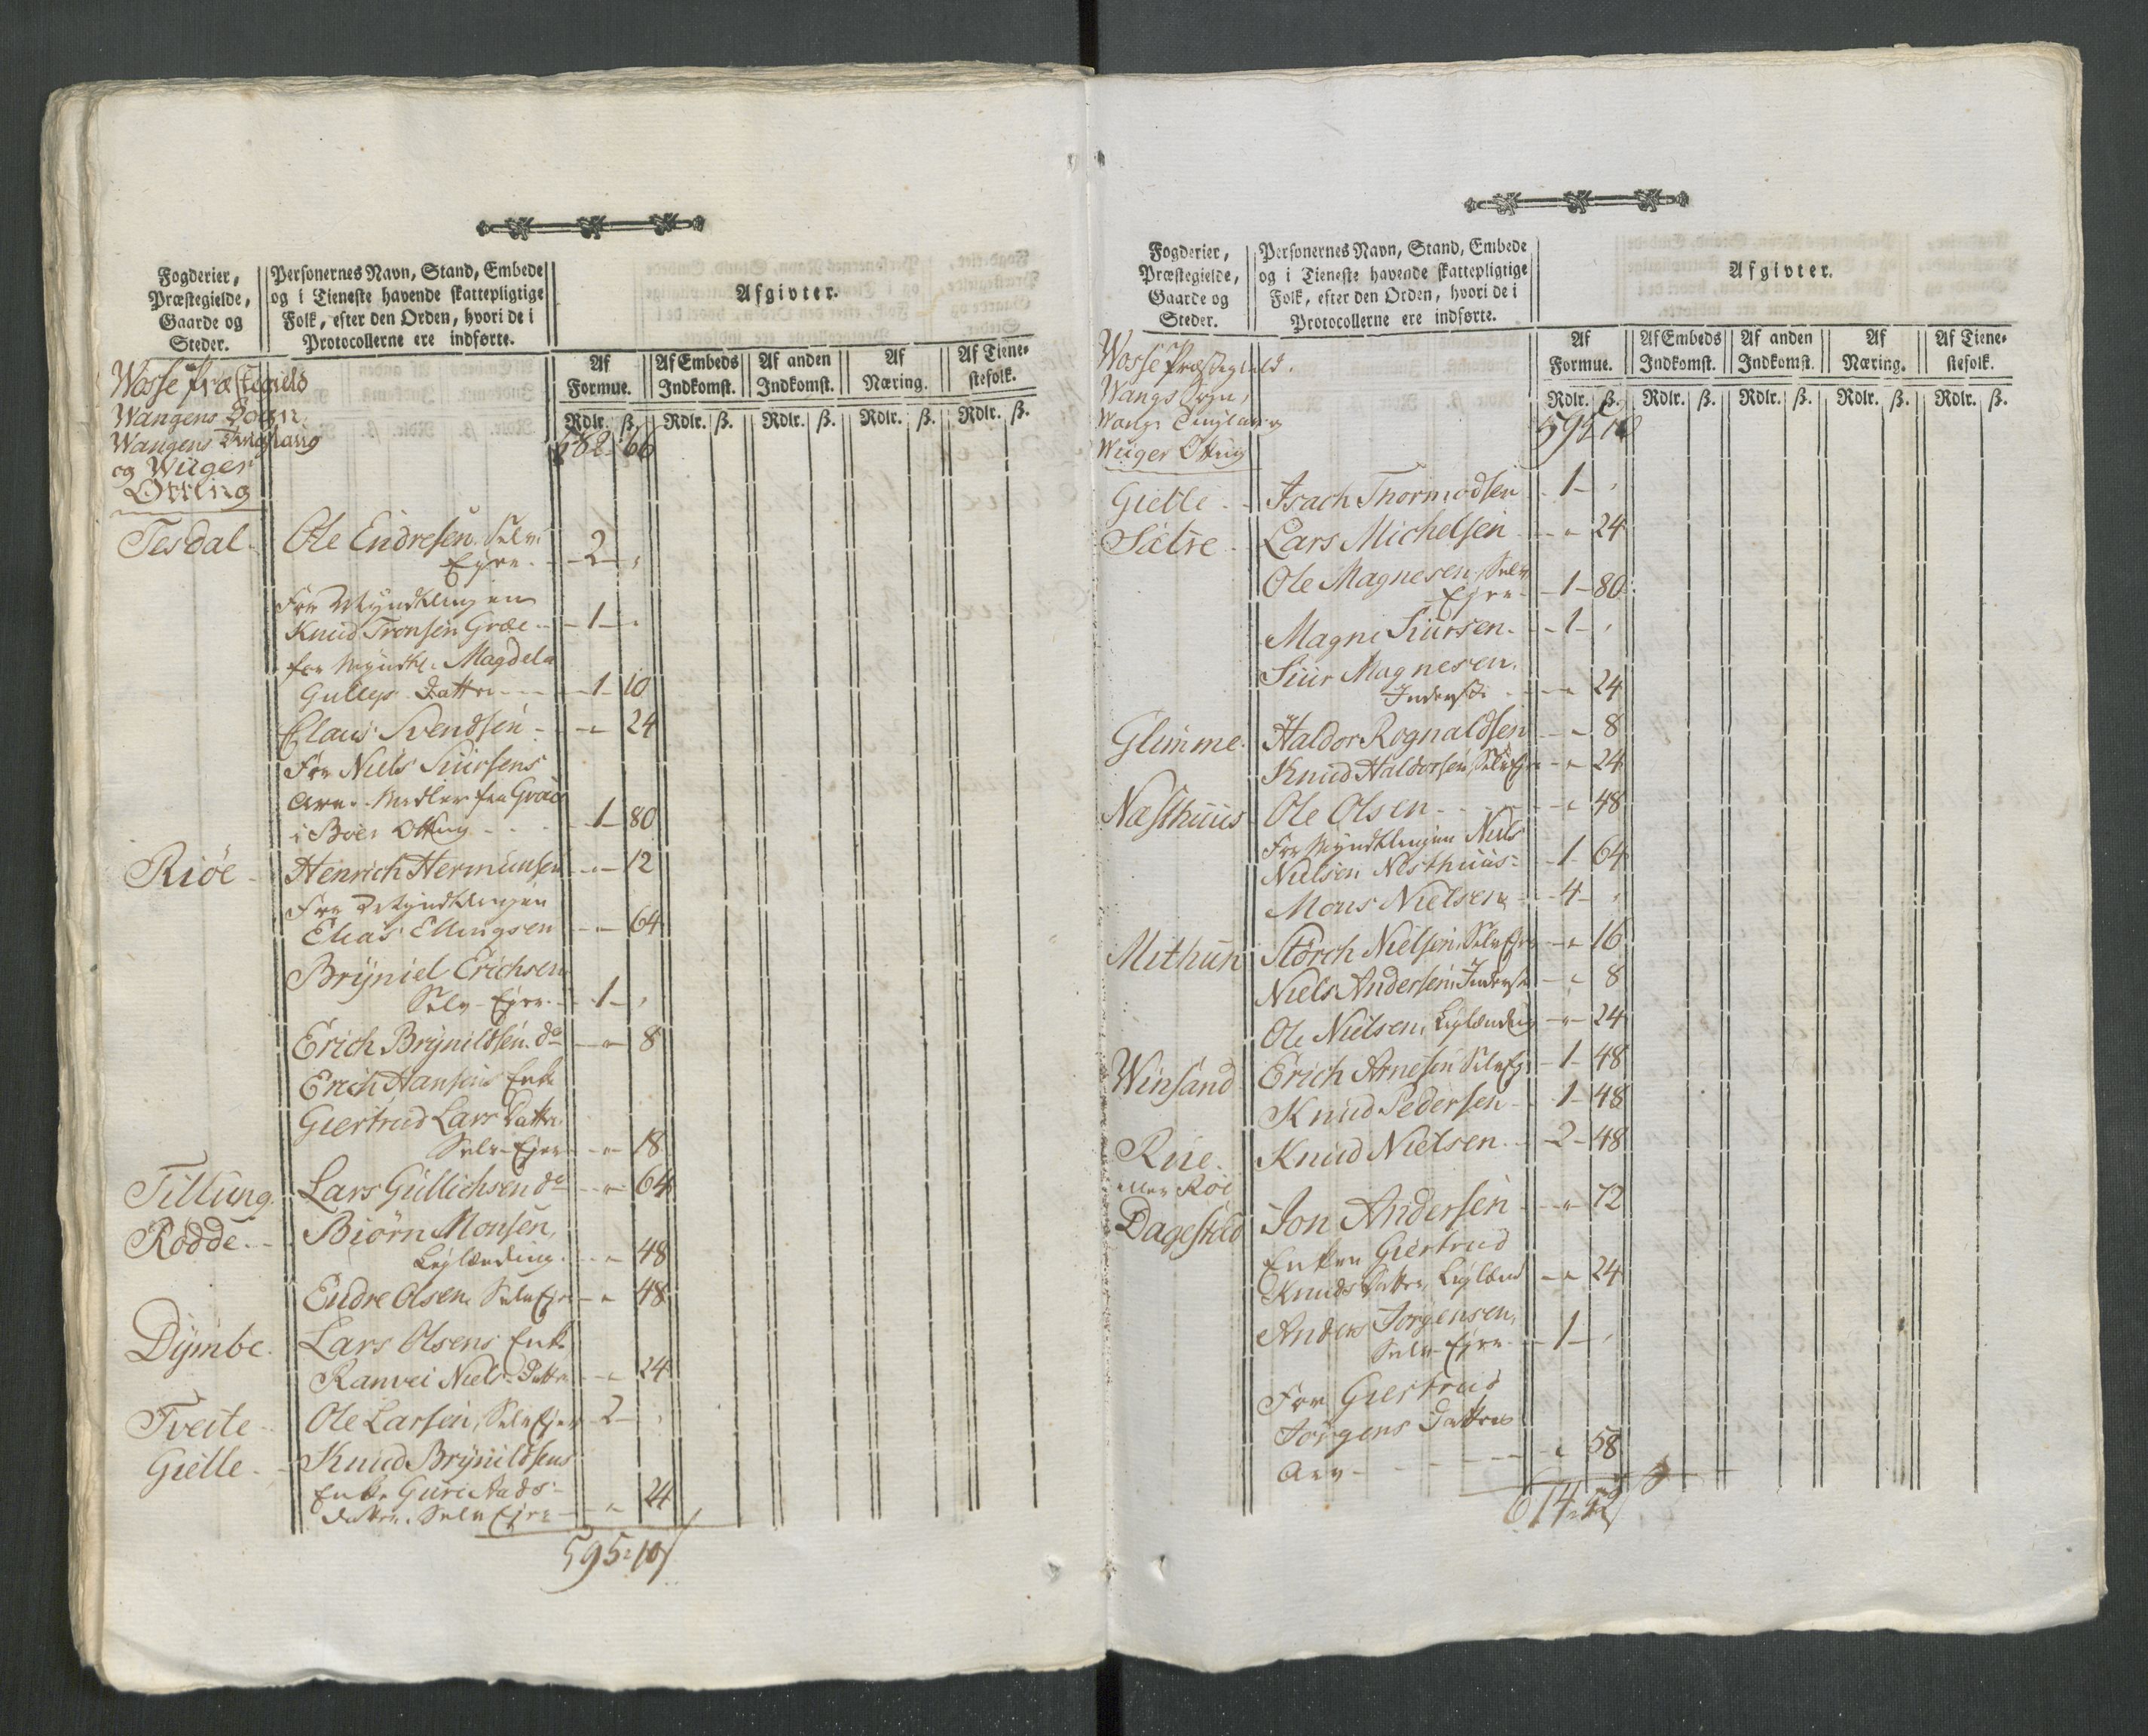 Fogderier,
Præstegielde,
Gaarde og
Steder.
Personernes Navn, Stand, Embede
og i Tieneste havende skattepligtige
Folk, efter den Orden, hvori de i
Protocollerne ere indførte.
Afgivter.
Af Formue.
Af Embeds Indkomst.
Af anden Indkomst.
Af Næring.
Af Tienestefolk.
Rdlr. ß. Rdlr. ß. Rdlr. ß. Rdlr. ß. Rdlr. ß.
Wosse Præstegield
Wangens Sogn,
Wangens Tinglaug
og Wiiger
Otting
582 66
Tesdal Ole Endresen, Selv
Ejer 2
For Myndtlingen
Knud Tronsen Græe 1
for Myndtl. Magdela
Gulleys Datter 1 10
Claus Svendsen 24
For Niels Siursens
Arv. Midler fra Græe
i Boes Otting 1 80
Riøe Henrich Hermunsen 12
For Myndtlingen
Elias Ellingsen 64
Bryniel Erichsen
Selv-Ejer 1
Erich Brynildsen do 8
Erich Hansens Enke
Giertrud Lars Datter
Selv-Ejer 18
Tillung Lars Gullichsen do 64
Rødde Biørn Monsen,
Leylænding 48
Endre Olsen, Selv Ejer 48
Dymbe Lars Olsens Enke
Ranvei Niels Datter 24
Tveite Ole Larsen, Selv Ejer 2
Gielle Knud Brynildsens
Enke Guri Aads-
datter. Selv Ejer 24
595 10
Fogderier,
Præstegielde,
Gaarde og
Steder.
Personernes Navn, Stand, Embede
og i Tieneste havende skattepligtige
Folk, efter den Orden, hvori de i
Protocollerne ere indførte.
Afgivter.
Af Formue.
Af Embeds Indkomst.
Af anden Indkomst.
Af Næring.
Af Tienestefolk.
Rdlr. ß. Rdlr. ß. Rdlr. ß. Rdlr. ß. Rdlr. ß.
Wosse Præstegield.
Wangs Sogn,
Wangs Tinglaug
Wiiger Otting
595 10
Gielle Isach Thormodsen 1
Sætre Lars Michelsen 24
Ole Magnesen, Selv
Ejer 1 80
Magne Siursen 1
Siur Magnesen,
Inderste 24
Glimme Haldor Rognaldsen 8
Knud Haldorsen, Selv Ejer 24
Næsthuus Ole Olsen 48
For Myndtlingen Niels
Nielsen Nesthuus 1 64
Mons Nielsen 4
Mithun Størch Nielsen, Selv Ejer 16
Niels Andersen, Inderste 8
Ole Nielsen, Leylænding 24
Winsand Erich Arnesen Selv Ejer 1 48
Knud Pedersen 1 48
Rue Knud Nielsen 2 48
eller Røe
Dagestad Jon Andersen 72
Enken Giertrud
Knuds Datter, Leylænd 24
Anders Jørgensen,
Selv-Ejer 1
For Giertrud
Jørgens Datters
Arv 58
614 52